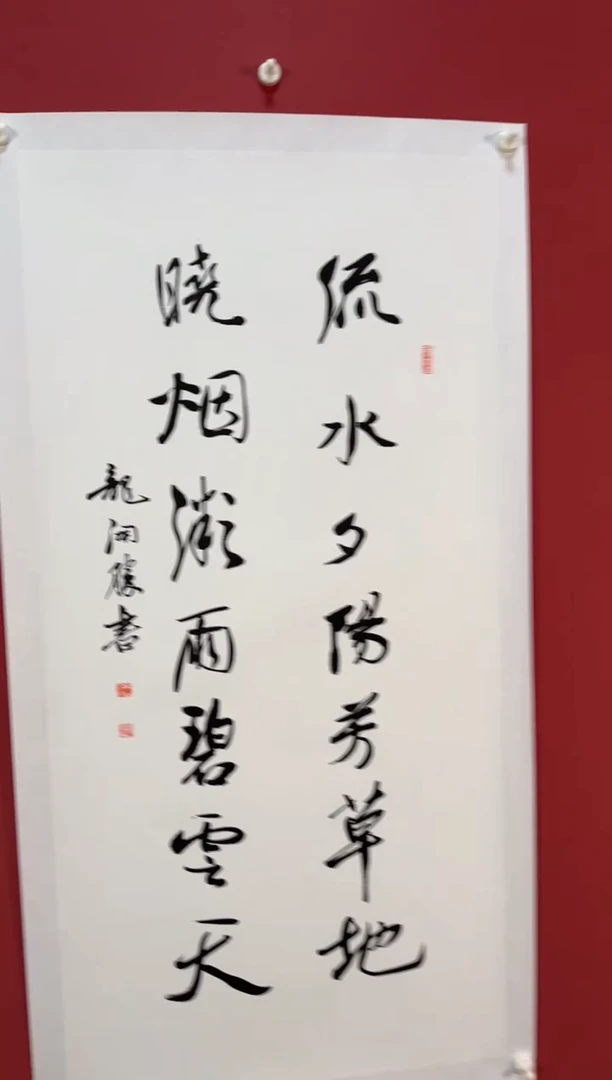 流水夕陽芳草地
晓烟微雨碧雲天
龍開勝書